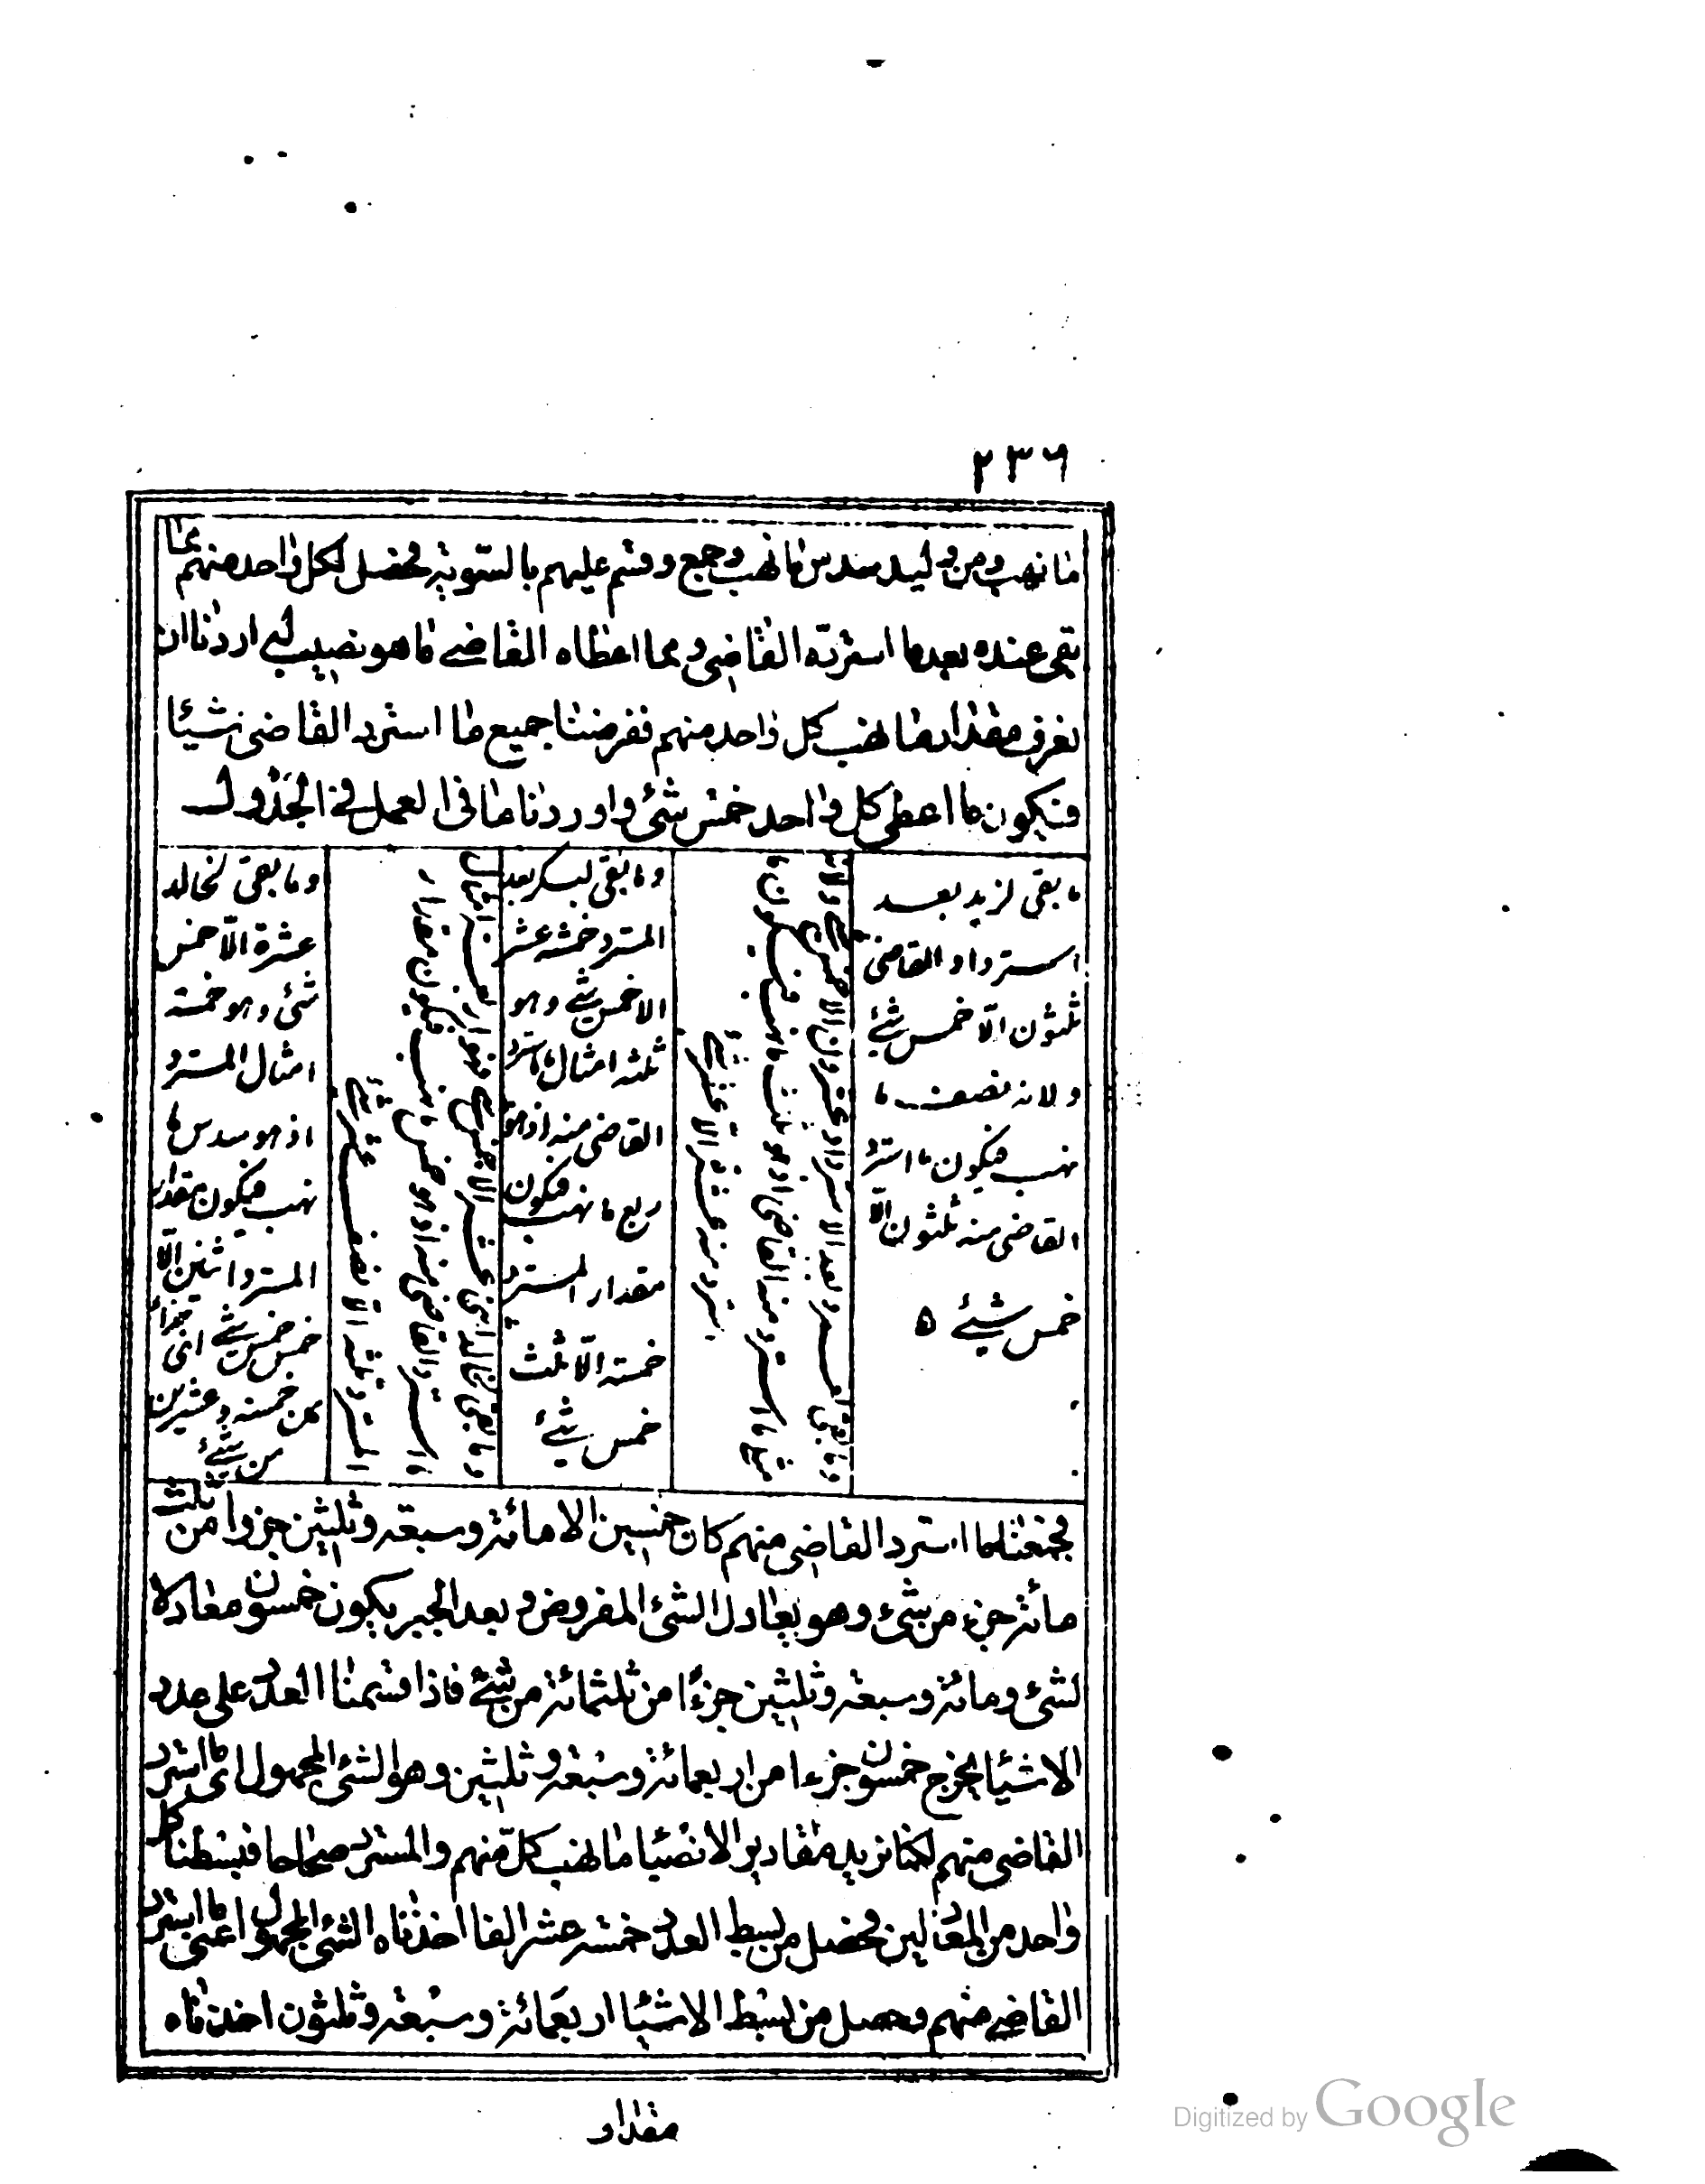 ٢٣٦
ما نهب ومن وليد سدس ما نهب وجمع وقسم عليهم بالسّويّة فحصل لكل واحد منهم مما
بقى عنده بعد ما استردّه القاضى ومما اعطاه القاضى ما هو نصيب له اردنا ان
نعرف مقدار ما نهب كل واحد منهم ففرضنا جميع ما استرد القاضى شيئا
فيكون ما اعطى كل واحد خمس شئ واوردنا ما فى العمل فى الجدول
ما بقى لزيد بعد
استرداد القاضى
ثلثون الّا خمس شئ
ولانه نصف ما
نهب فيكون ما استرد
القاضى منه ثلثون الّا
خمس شئ ه
وما بقى بعد الاسترداد عشرون الا خمس شئ
مثلا ما استرد منه القاضى اذ هو ثلث ما نهب فيكون ما
استرد منه عشرة الا عشر شئ
وما بقى لبكر بعد
المسترد خمسة عشر
الا خمس شئ وهو
ثلثه امثال ما استرد
القاضى منه اذ هو
ربع ما نهب فيكون
مقدار المسترد
خمسة الّا ثلث
خمس شئ
وما بقى الا خمس شئ
ما استرد القاضى منه اذ هو خمس ما نهب فيكون مقدار
المسترد ثلثه الا نصف عشر شئ
وما بقى لخالد
عشرة الّا خمس
شئ وهو خمسة
امثال المسترد
اذ هو سدس ما
نهب فيكون مقدار
المسترد اثنين الّا
خمس خمس شئ اى جزءا
من خمسة وعشرين
من شئ
فجمعنا ما استرد القاضى منهم كان خمسين الا مائة وسبعة وثلثين جزوا من ثلث
مائة جزء من شئ وهو يعادل الشئ المفروض وبعد الجبر يكون خمسون معادلا
لشئ ومائة وسبعة وثلثين جزءًا من ثلثمائة من شئ فاذا قسمنا العدد على عدد
الاشيا يخرج خمسون جزءا من اربعمائة وسبعة وثلثين وهو الشئ المجهول اى ما استرد
القاضى منهم لكنا نريد مقادير الانصبا ما نهب كل منهم والمسترد صحاحا فبسطنا كل
واحد من المعادلين فحصل من بسط العدد خمسة عشر الفا اخذناه الشئ المجهول اعنى ما استرد
القاضى منهم وحصل من بسط الاشيا اربعمائة وسبعة وثلثون اخذناه
مقدار
Digitized by Google